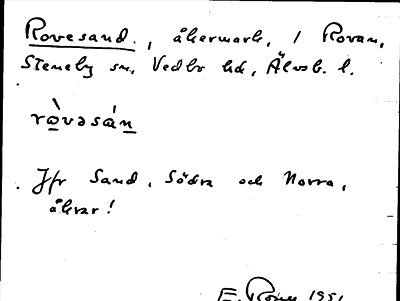 Rovesand, åkermark, i Rovan,
Steneby sn, Vedbo hd, Älvsb. l.
rò̱vəsán̲
Jfr Sand, Södra och Norra,
åkrar!
E. 1951